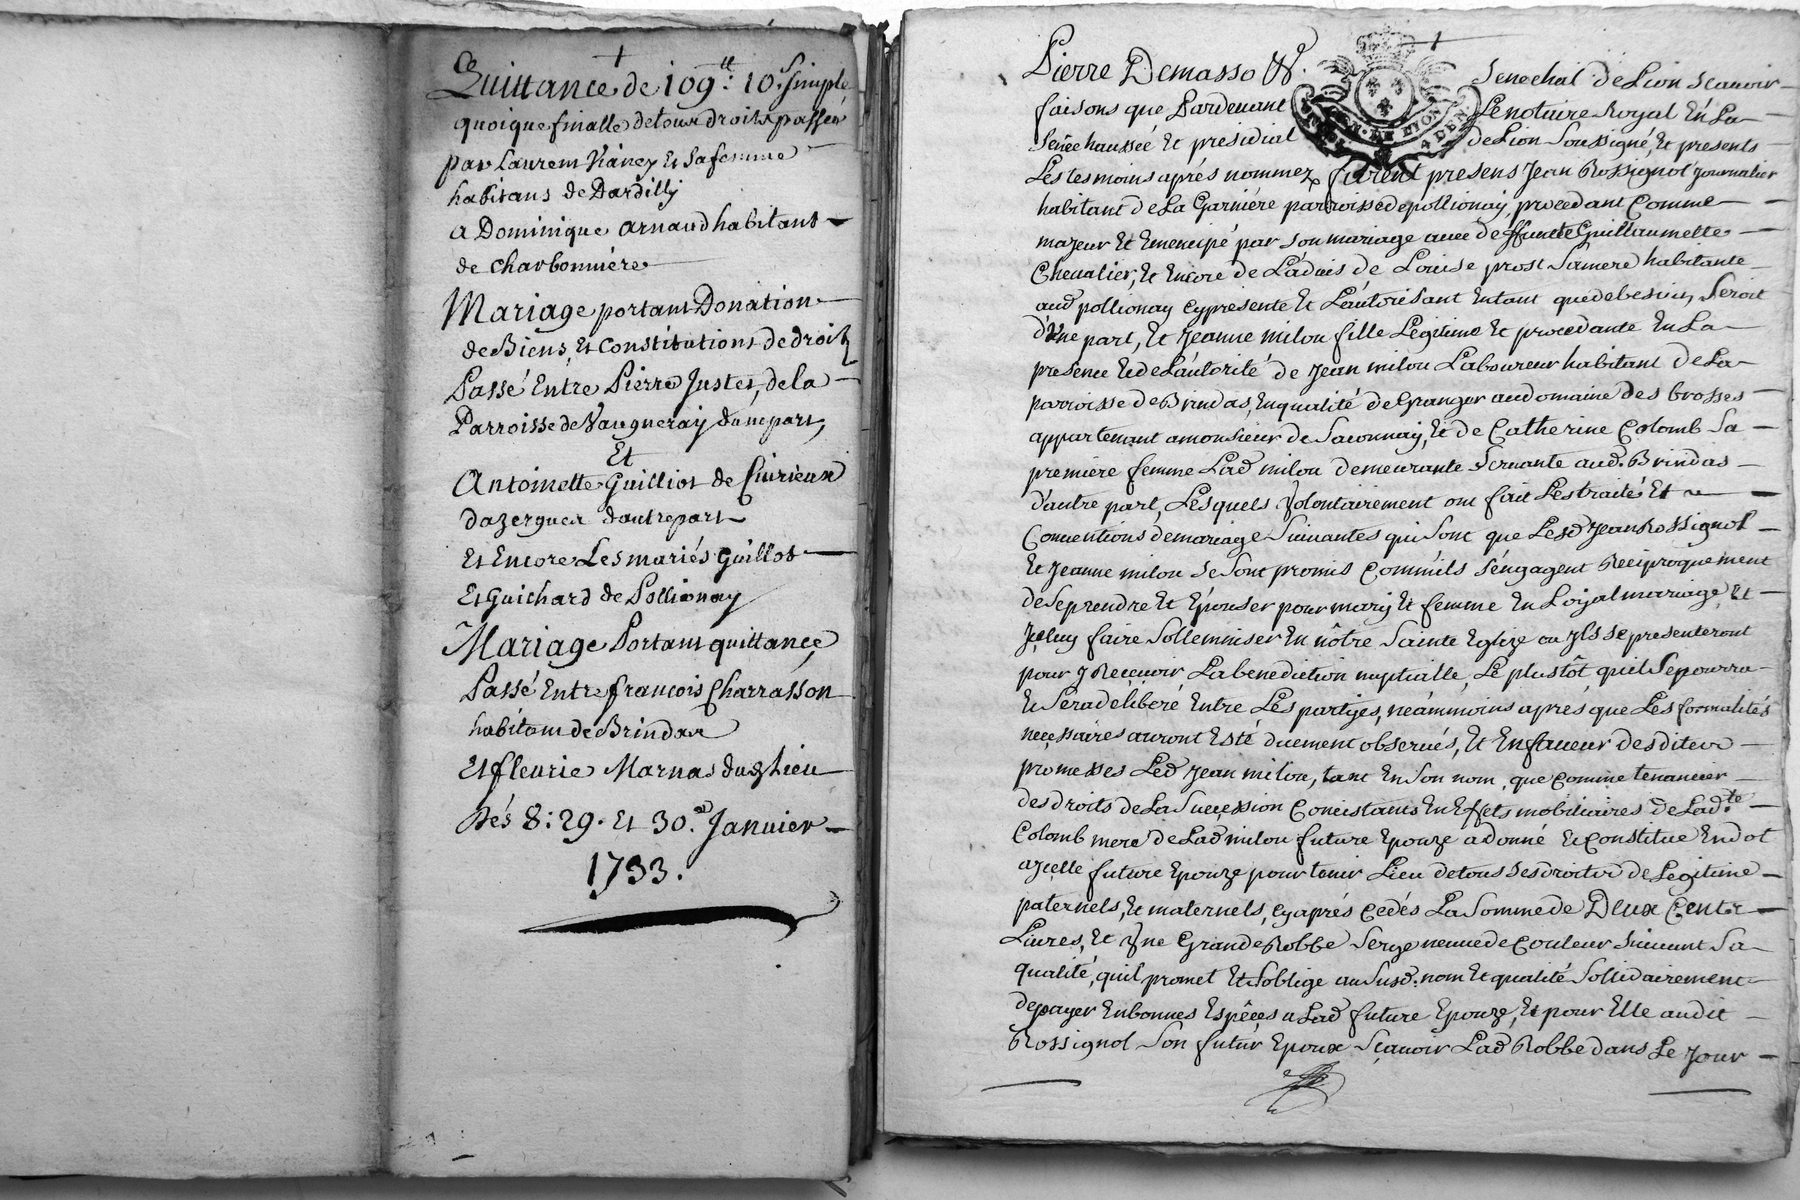 Quittance de 109ᵗᵗ: 10.ˢ simple
quoique finalle de tous droits passée
par Laurent Vianey Et Sa femme
habitans de Dardilly
a Dominique arnaud habitant
de charbonniére
Mariage portant Donation
de Biens, Et Constitutions de droit
Passé Entre Pierre Justet, de la
Parroisse de Vaugneray d'une part,
Et
Antoinette Guilliot de Civrieux
dazergues d'autre part
Et Encore Les mariés Guillot
Et Guichard de Pollionay
Mariage Portant quittance,
Passé Entre françois Charrasson
habitant de Brindas
Et fleurie Marnas dud Lieu
Dés 8: 29. Et 30.e Janvier
1733.
Pierre Demasso
Senechal de Lion Scavoir
faisons que Pardevant
Le notaire Royal En La
Sénéchaussée Et présidial
de Lion Soussigné, Et presents
Les tesmoins aprés nommez furent presens Jean Rossignol journalier
habitant de La Garniére parroisse de pollionay, procedant Comme
majeur Et Emencipé par son mariage avec deffunte Guillaumette
Chevalier, Et Encore de L'advis de Louise prost Sa mere habitante
aud pollionay cy presente Et L'autorisant Entant que de besoin Seroit
d'une part, Et Jeanne milou fille Legitime Et procedante En La
presence Et de L'autorité de Jean milou Laboureur habitant de La
parroisse de Brindas, En qualité de Granger au domaine des brosses
appartenant a monsieur de Saconnay, Et de Catherine Colomb Sa
premiere femme Lad milou demeurante Servante aud. Brindas
d'autre part, Lesquels Volontairement ont fait Les traité Et
Conventions de mariage Suivantes qui sont que Lesd Jean Rossignol
Et Jeanne milou se sont promis Comm'ils s'engagent Reciproquement
de Se prendre Et Epouser pour mary Et femme En Loyal mariage, Et
Jceluy faire Sollemniser En nôtre Sainte Eglize ou Jls se presenteront
pour y Recevoir La benediction nuptialle, Le plustôt qu'il Se pourra
Et Sera deliberé Entre Les partyes, néammoins aprés que Les formalités
necessaires auront Esté duement observés, Et En faveur desdites
promesses Led Jean milou, tant En Son nom, que comme tenancier
des droits de La Succession Concistants En Effets mobiliaires de Lad.te
Colomb mere de Lad milou future Epouze a donné Et Constitue En dot
a Jcelle future Epouze pour tenir Lieu de tous ses droits de Legitime
paternels, Et maternels, cy aprés cedés La Somme de Deux Cents
Livres, Et Une Grande Robbe Serge neuve de Couleur Suivant Sa
qualité, qu'il promet Et S'oblige au Susd. nom Et qualité Sollidairement
de payer En bonnes Espéces a Lad future Epouze, Et pour Elle audit
Rossignol Son futur Epoux Sçavoir Lad Robbe dans Le Jour